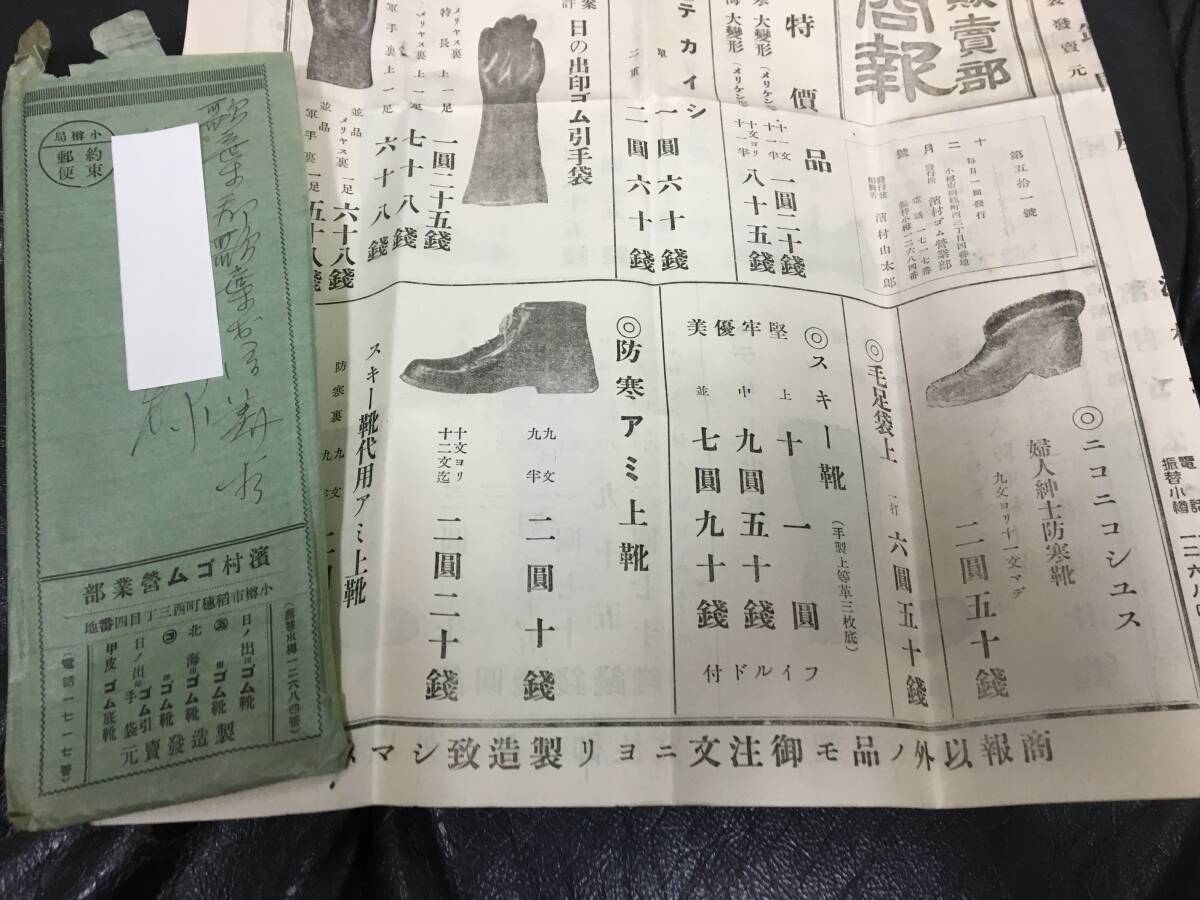 小樽局
約束
郵便
濱村ゴム營業部
小樽市稻穗町西三丁目四番地
(振替小樽一二六八四番)
日ノ出印ゴム靴
ゴム靴
北海印ゴム靴
ゴム靴
日ノ出印ゴム引手袋
甲皮ゴム底靴
製造發賣元
(電話一七一七番)
賣部
商報
第五拾一號
十二月號
每月一回發行
小樽市稻穗町西三丁目四番地
發行所 濱村ゴム營業部
電話一七一七番
振替小樽一二六八四番
濱村山太郎
特價品
大變形(メリケン
十一文
十一半
一圓二十錢
大變形(メリケン
十文ヨリ
十一半
八十五錢
テカイシ
單
一圓六十錢
二重
二圓六十錢
日の出印ゴム引手袋
メリヤス裏上一足
一圓二十五錢
七十八錢
軍手裏上一足
六十八錢
並品
メリヤス裏一足
六十八錢
並品
軍手裏一足
五十八錢
◎ニコニコシユス
婦人紳士防寒靴
九文ヨリ十一文マデ
二圓五十錢
◎毛足袋上
一打
六圓五十錢
◎スキー靴
(手製上等革三枚底)
堅牢優美
上 十一圓
中 九圓五十錢
並 七圓九十錢
フイルド付
◎防寒アミ上靴
九文
九半
二圓十錢
十文ヨリ
十二文迄
二圓二十錢
スキー靴代用アミ上靴
防寒裏
九文
九半
商報以外ノ品モ御注文ニヨリ製造致シマス
發賣元
電話
振替小樽一二六八